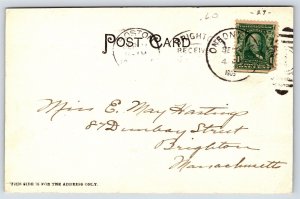 60
29
POST CARD
BOSTON
BRIGHT
RECEIVED
4
1905
Miss E. May Hastings
87 Dunboy Street
Brighton
Massachusetts
THIS SIDE IS FOR THE ADDRESS ONLY.